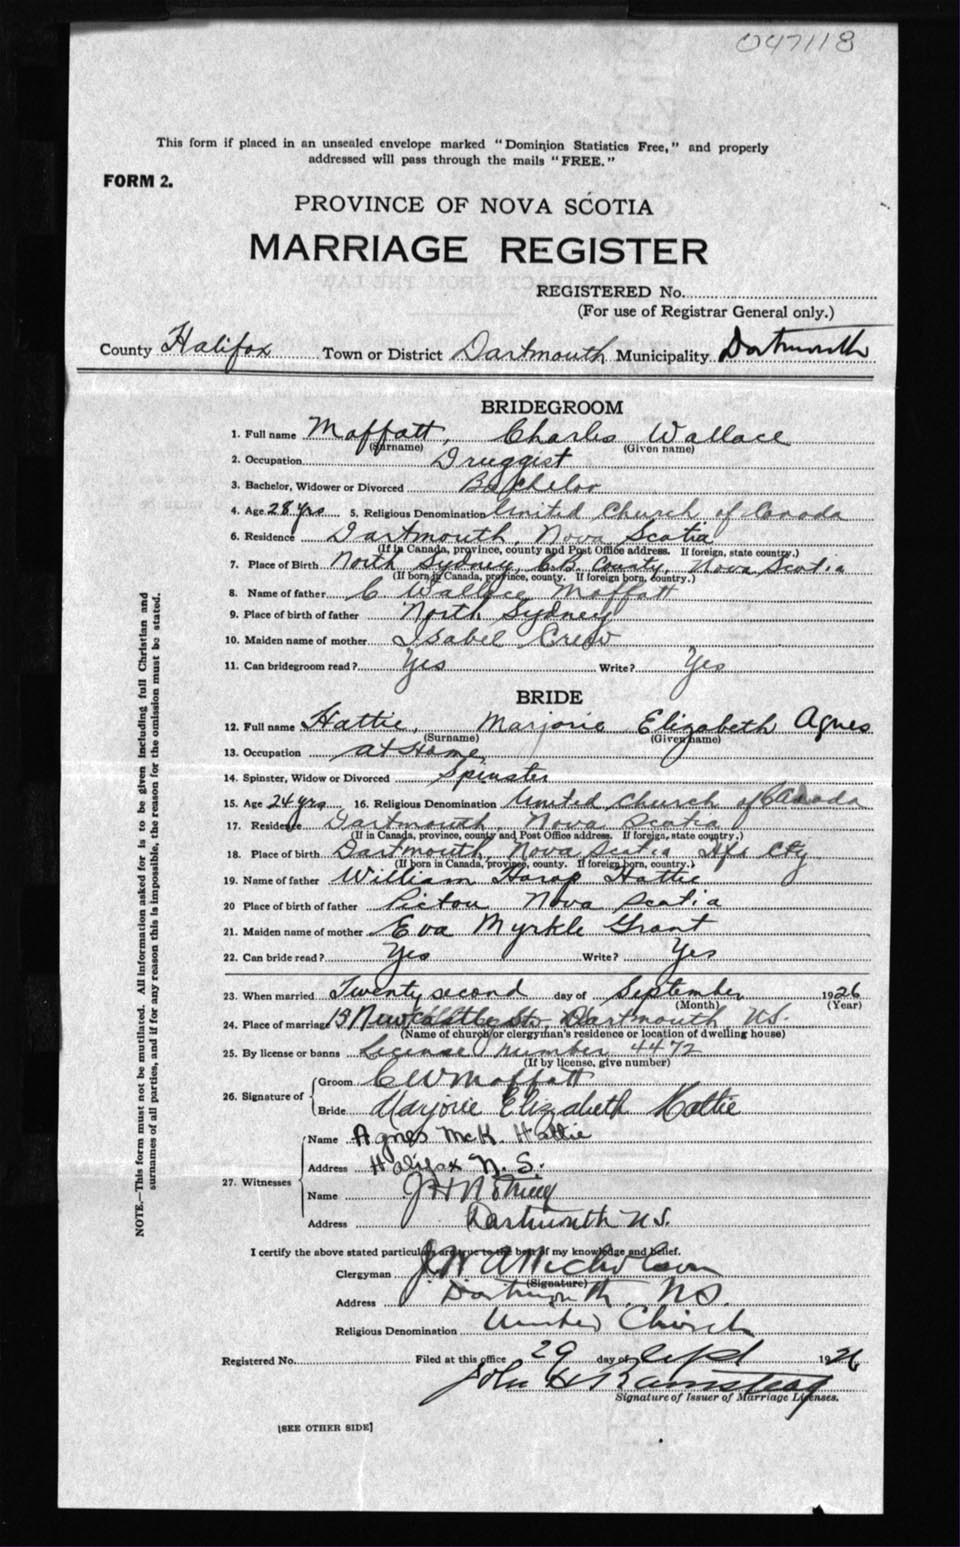 047118
This form if placed in an unsealed envelope marked "Dominion Statistics Free," and properly
addressed will pass through the mails "FREE."
FORM 2.
PROVINCE OF NOVA SCOTIA
MARRIAGE REGISTER
REGISTERED No.
(For use of Registrar General only.)
County Halifax Town or District Dartmouth Municipality Dartmouth
BRIDEGROOM
1. Full name Moffatt, Charles Wallace
(Surname) (Given name)
2. Occupation Druggist
3. Bachelor, Widower or Divorced Bachelor
4. Age 28 yrs 5. Religious Denomination United Church of Canada
6. Residence Dartmouth, Nova Scotia
(If in Canada, province, county and Post Office address. If foreign, state country.)
7. Place of Birth North Sydney, C.B. County, Nova Scotia
(If born in Canada, province, county. If foreign born, country.)
8. Name of father C Wallace Moffatt
9. Place of birth of father North Sydney
10. Maiden name of mother Isabel Crew
11. Can bridegroom read? Yes Write? Yes
BRIDE
12. Full name Hattie, Marjorie Elizabeth Agnes
(Surname) (Given name)
13. Occupation at Home
14. Spinster, Widow or Divorced Spinster
15. Age 24 yrs 16. Religious Denomination United Church of Canada
17. Residence Dartmouth, Nova Scotia
(If in Canada, province, county and Post Office address. If foreign, state country.)
18. Place of birth Dartmouth, Nova Scotia Hfx Cty
(If born in Canada, province, county. If foreign born, country.)
19. Name of father William Harop Hattie
20 Place of birth of father Pictou Nova Scotia
21. Maiden name of mother Eva Myrkle Grant
22. Can bride read? Yes Write? Yes
23. When married Twenty second day of September 1926
(Month) (Year)
24. Place of marriage 19 Newcastle St, Dartmouth N.S.
(Name of church or clergyman's residence or location of dwelling house)
25. By license or banns License number 4472
(If by license, give number)
26. Signature of Groom C W Moffatt
Bride Marjorie Elizabeth Hattie
27. Witnesses Name Agnes McK. Hattie
Address Halifax N. S.
Name J H
Address Dartmouth N.S.
I certify the above stated particulars are true to the best of my knowledge and belief.
Clergyman J W A Nicholson
(Signature)
Address Dartmouth, N.S.
Religious Denomination United Church
Registered No. Filed at this office 29 day of Sept 1926
John H
Signature of Issuer of Marriage Licenses.
[SEE OTHER SIDE]
NOTE.—This form must not be mutilated. All information asked for is to be given including full Christian and
surnames of all parties, and if for any reason this is impossible, the reason for the omission must be stated.